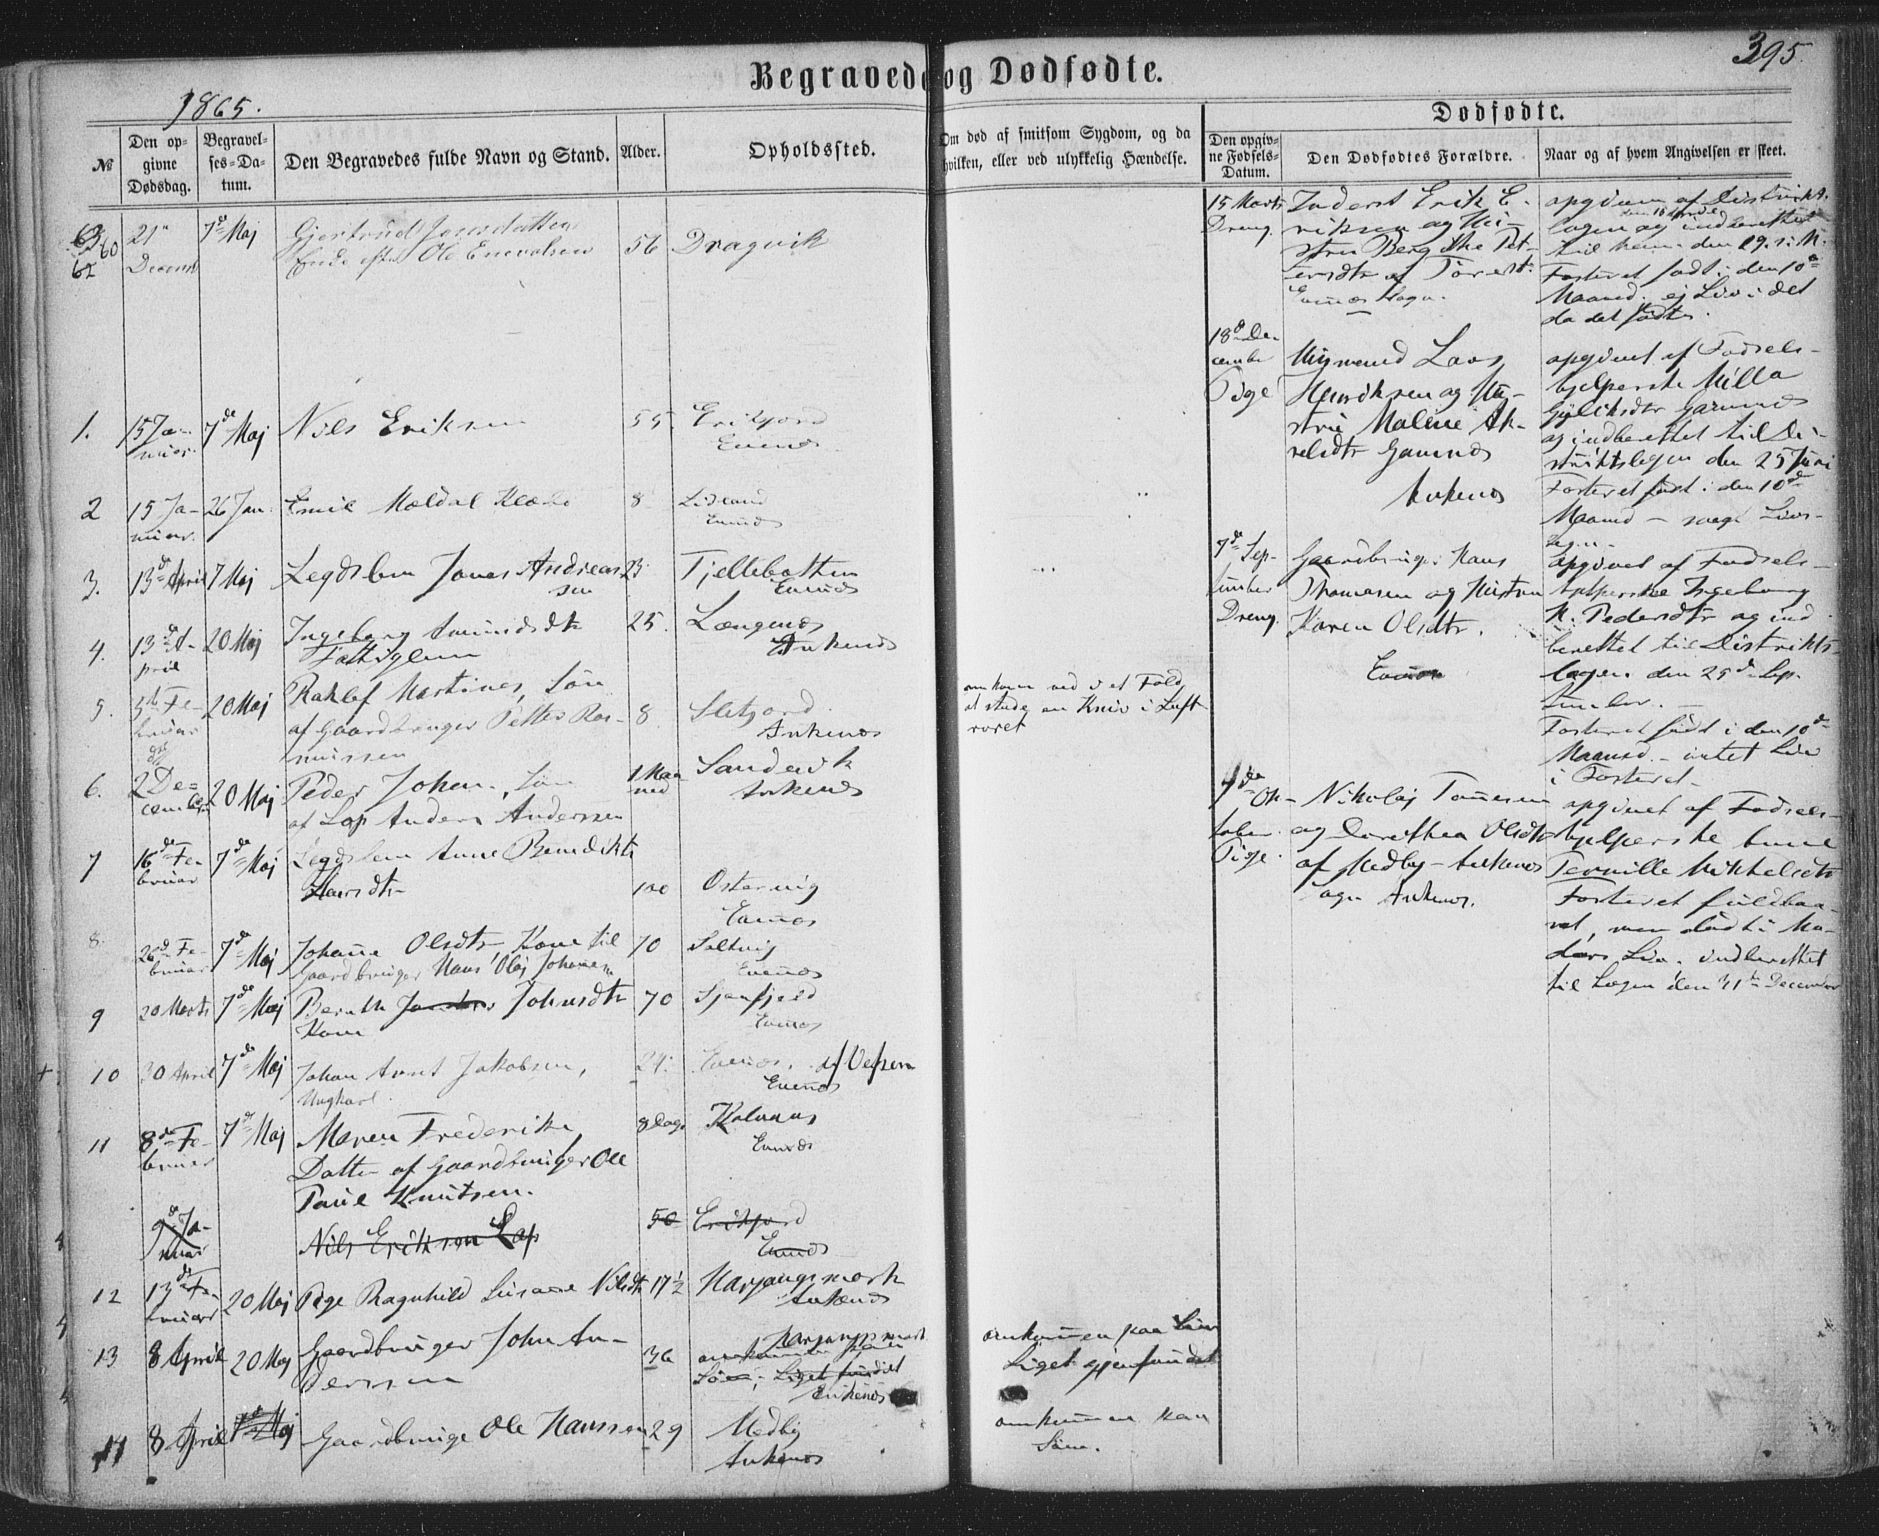 395.
Begravede og Dødfødte.
1865.
Dødfødte.
№
Den op-
givne
Dødsdag.
Begravel-
ses-Da-
tum.
Den Begravedes fulde Navn og Stand.
Alder.
Opholdssted.
Om død af smitsom Sygdom, og da
hvilken, eller ved ulykkelig Hændelse.
Den opgiv-
ne Fødsels-
Datum.
Den Dødfødtes Forældre.
Naar og af hvem Angivelsen er skeet.
60
21
Decemb
7de Maj
Gjertrud Jonsdatter
Enke efter Ole Enevolsen
56
Dragvik
1.
15 Ja-
nuar.
7de Maj
Nils Eriksen
55
Erikjord
Evenæs
2
15 Ja-
nuar.
26 Jan.
Emil Mældal
8
Lidland
Evenæs
3.
13de April
7 Maj
Legdslem Jonas Andreas
sen
23
Tjellebotten
Evenæs
4.
13de A-
pril
20 Maj
Ingeborg Amundsdtr
Fattiglem
25.
Længenæs
Ankenæs
5.
5te Fe-
bruar
20 Maj
Martines, Søn
af Gaardbruger Petter Ras-
mussen
8
Sletjord
Ankenæs
omkom ved i et Fald
at støde en Kniv i Luft
røret
6.
2 De-
cember
20 Maj
Peder Johan, Søn
af Lap Anders Anderssen
1 Maa
ned
Sandvik
Ankenæs
7
16de Fe-
bruar
7de Maj
Legdslem Anne Benedikte
Larsdtr
100
Østervig
Evenæs
8.
26de Fe-
bruar
7de Maj
Johanne Olsdtr Kone til
Gaardbruger Hans Olaj Johansen
70
Soltvig
Evenæs
9
20 Marts
7de Maj
Berith Johnsdtr
Kone
70
Evenæs
10
30 April
7de Maj
Johan Arnt Jakobsen,
Ungkarl.
24.
Evenæs. af Vefsen
Evenæs
11
8de Fe-
bruar
7de Maj
Maren Frederike
Datter af Gaardbruger Ole
Paul Knutsen.
8 Dage
Kolvaas
Evenæs
9de Ja-
nuar
Nils Eriksen Lap
50
Erikjord
Evenæs
12
13de Fe-
bruar
20 Maj
Pige Ragnhild Nilsdtr
17½
Harjangsmark
Ankenæs
13
8 April
20 Maj
Gaardbruger John An-
derssen
36
Harjangsmark
omkommen paa
Søen; Liget fundet
Ankenæs
omkommen paa Søen
Liget gjenfundet
14
8 April
7de Maj
Gaardbruger Ole Hanssen
29
Medby
Ankenæs
omkommen paa
Søen.
15 Marts
Dreng.
Inderst Erik E-
riksen og Hu-
stru Bergithe Pet-
ersdtr af Tørest.
Evenæs Sogn.
opgiven af Distrikts-
lægen og indberettet
til ham den 29. s. M.
Fosteret født i den 10de
Maaned, ej Liv i det
da det fødtes.
18de De-
cember
Pige
Lars
Henriksen og Hu-
stru Malene Ak-
selsdtr Gamnæs
Ankenæs
opgivet af Fødsels-
hjelperske Milla
Gamnæs
og indberettet til Di-
striktslægen den 25 Juni
Fosteret født i den 10de
Maaned — svage Livs-
tegn.
7de Sep-
tember
Dreng.
Gaardbruger Hans
Thomesen og Hustru
Karen Olsdtr.
Evenæs
Opgivet af Fødsels-
hjelperske Ingeborg
K. Pedersdtr og ind
berettet til Distrikts-
lægen den 25de Sep-
tember. —
Fosteret født i den 10de
Maaned. — intet Liv
i Fosteret —
4de Ok-
tober
Pige.
Nikolaj Tomesen
og Dorothea Olsdtr
af Medby — Ankenæs
Sogn Ankenæs.
opgivet af Fødsels-
hjelperske
Pernille Mikkelsdtr
Fosteret fuldbaa-
ret, men død i Mo-
ders Liv. indberettet
til Lægen den 31te December